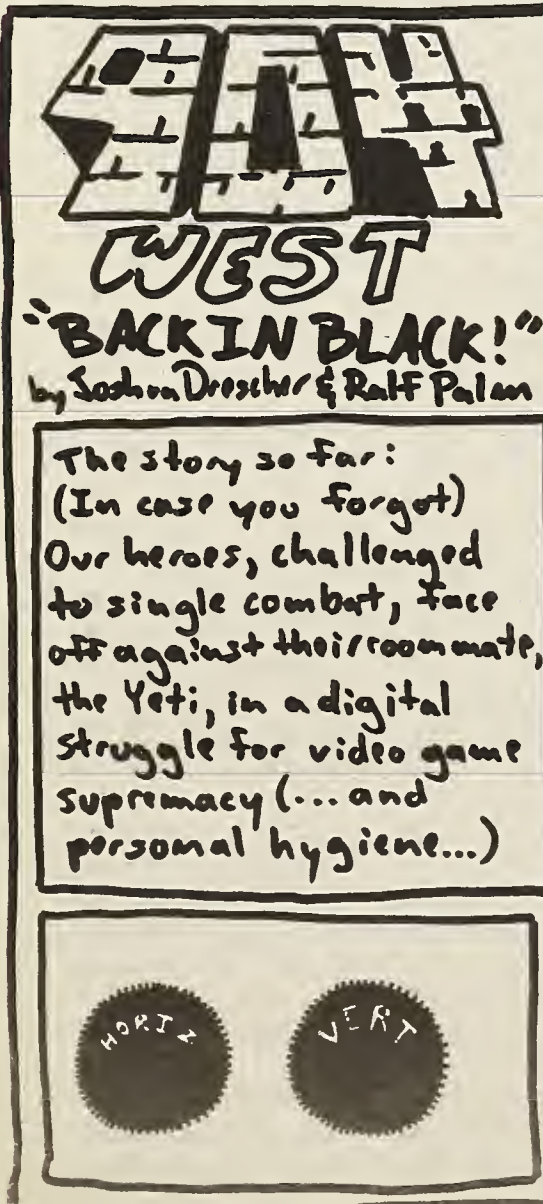 WEST
"BACK IN BLACK!"
by Joshua Drescher & Ralf Palm
The story so far:
(In case you forgot)
Our heroes, challenged
to single combat, face
off against their roommate,
the Yeti, in a digital
struggle for video game
supremacy (... and
personal hygiene...)
HORIZ
VERT